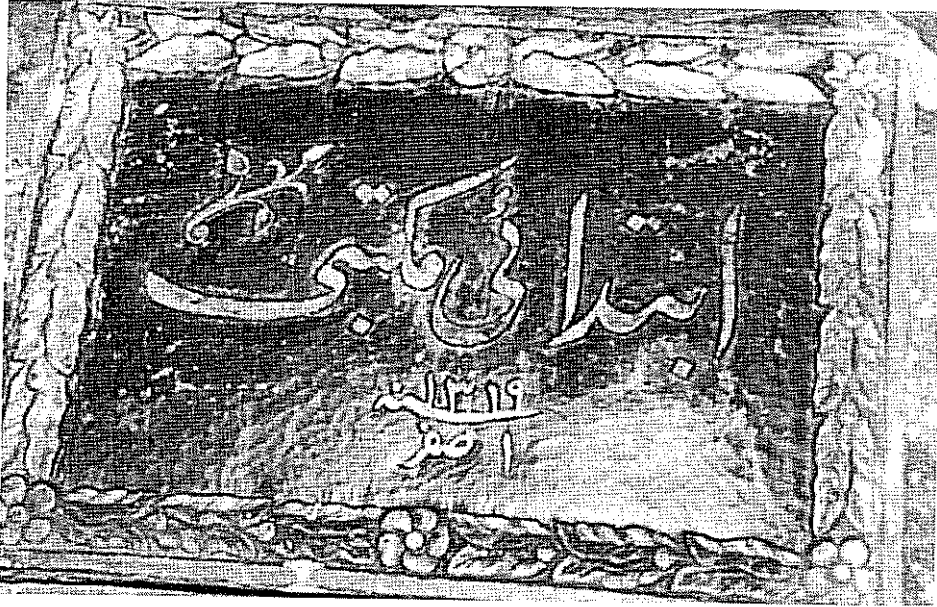 ابتدائی مکتبی
سنه ١٣١٩
١ صفر